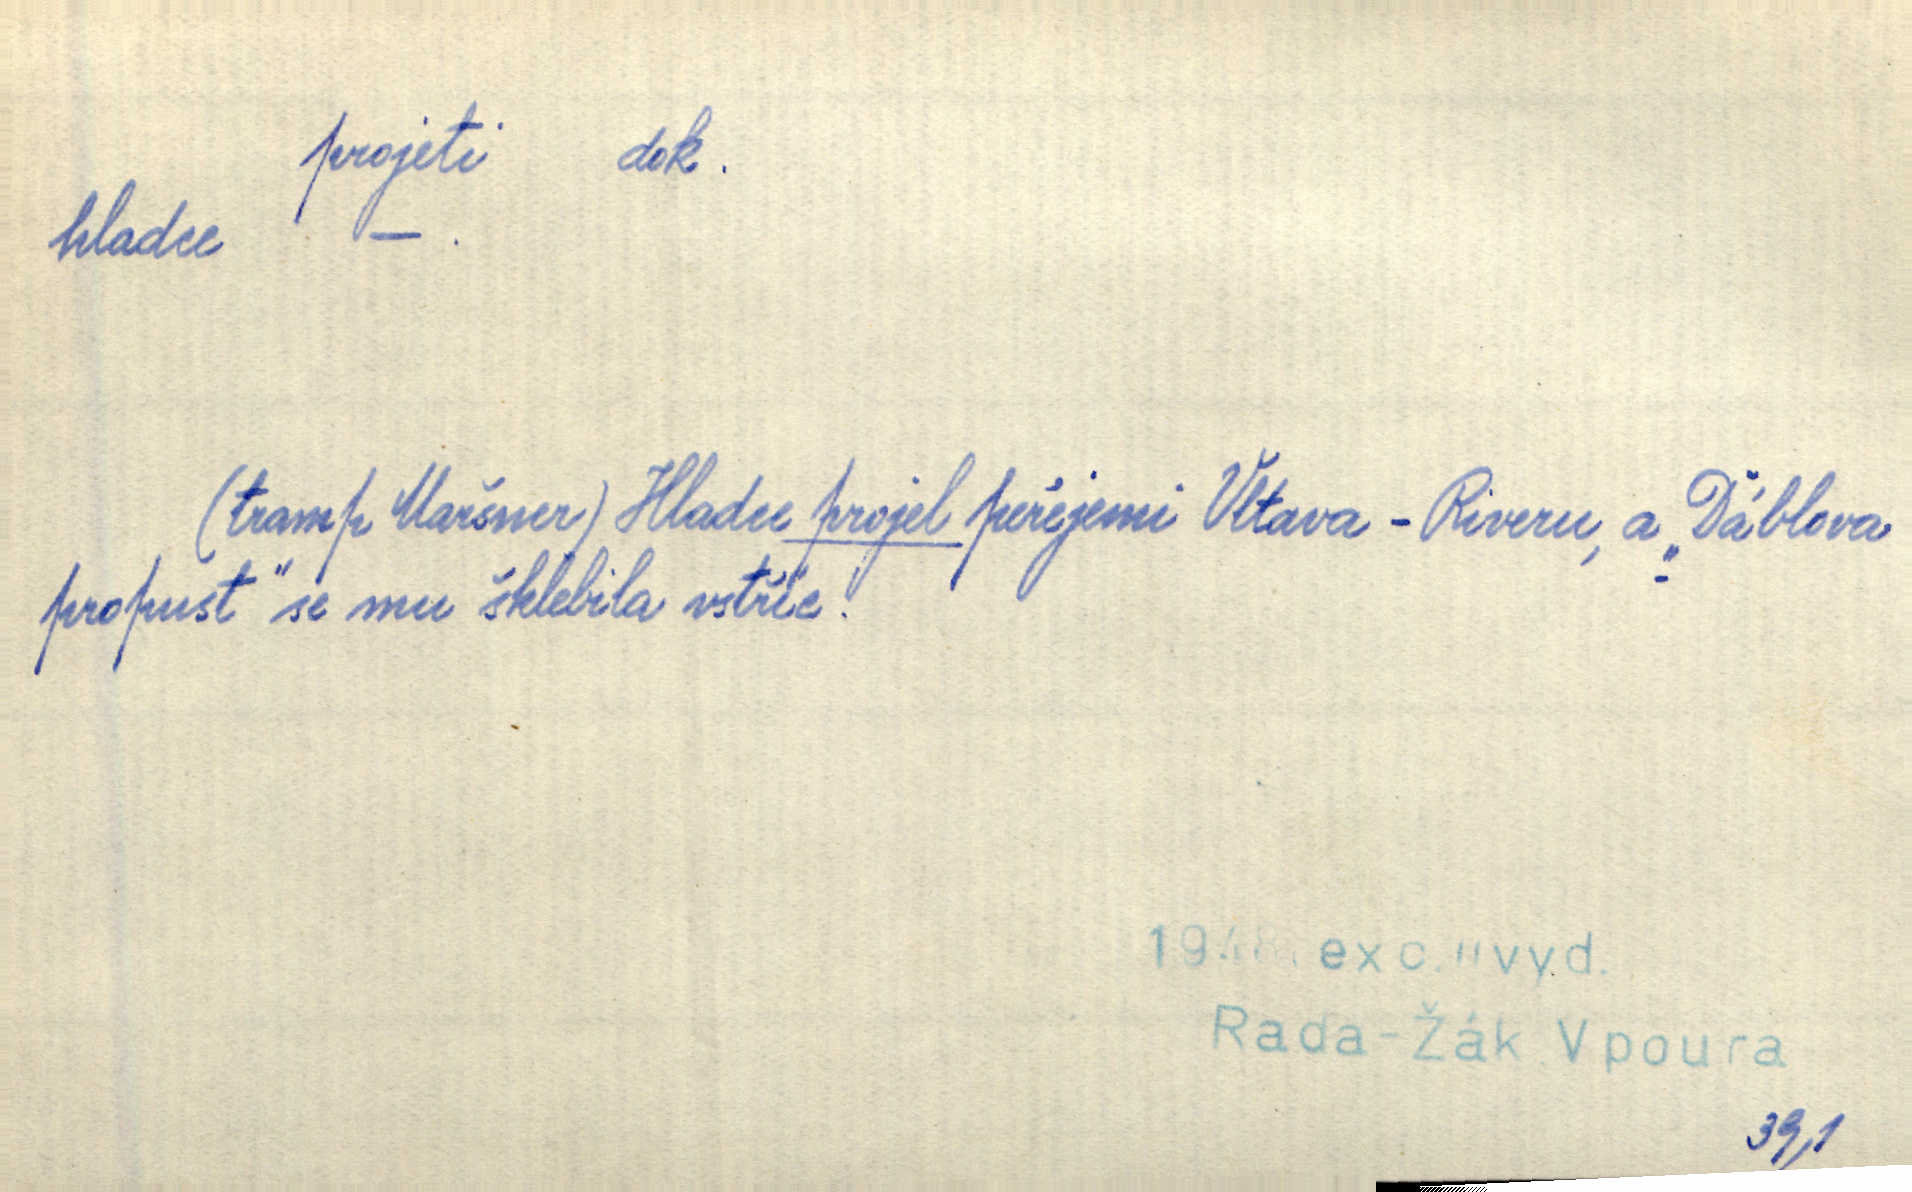 projeti dok.
hladce — .
(tramp Maršner) Hladce projel peřejemi Vltava - Riveru, a „Ďáblova
propust" se mu šklebila vstříc.
exc. II vyd.
Rada-Žák Vpoura
39,1